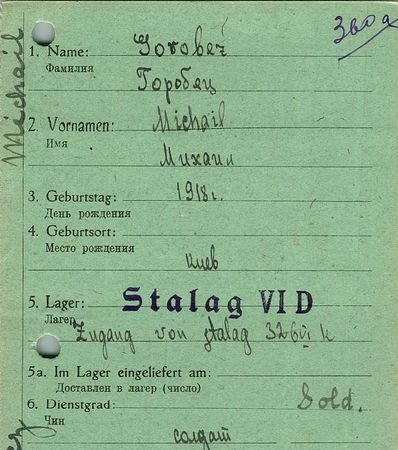 Michail
зво а
1. Name: Gorobeč
Фамилия
Горобец
2. Vornamen: Michail
Имя
Михаил
3. Geburtstag: 1918 г.
День рождения
4. Geburtsort:
Место рождения
Киев
5. Lager: Stalag VI D
Лагер
Zugang von Stalag 326 VI K
5a. Im Lager eingeliefert am:
Доставлен в лагер (число)
6. Dienstgrad: Sold.
Чин
солдат